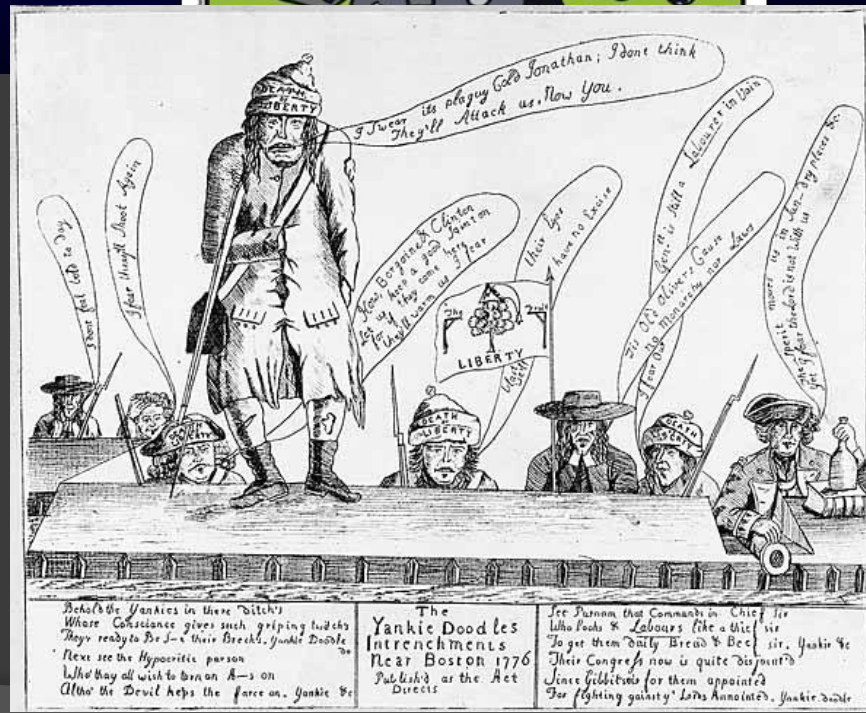 I Swear its plaguy Cold Jonathan; I done think
They'll Attack us, Now You.
DEATH
or
LIBERTY
I done feel bold to day
I fear they'll shoot Again
Now, Borgoine & Clinton
let us keep a good
for if they come here
they'll warm us I fear
their Eyes
have no Excise
The
LIBERTY
Gen.ll is still a Labourer in Vain
Tis Old Olivers Cause
no Monarchy nor Laws
I fear Our
The Sperit moves us in Sun-dry places &c.
Yet I fear the Lord is not with us
DEATH
LIBERTY
DEATH
LIBERTY
Behold the Yankies in there Ditch's
Whose Consciance gives such griping twitch's
They'r ready to Be S—t their Breech's. Yankie Doodle
do
Next see the Hypocritic parson
Who thay all wish to turn an A—s on
Altho the Devil keps the farce on. Yankie &c
The
Yankie Doodles
Intrenchments
Near Boston 1776
Publish'd as the Act
Directs
See Putnam that Commands in Chief Sir
Who looks & Labours like a thief sir
To get them daily Bread & Beef sir. Yankie &c
Their Congress now is quite disjoint'd
Since Gibbits is for them appointed
For fighting gainst y.e Lords Annointed. Yankie doodle